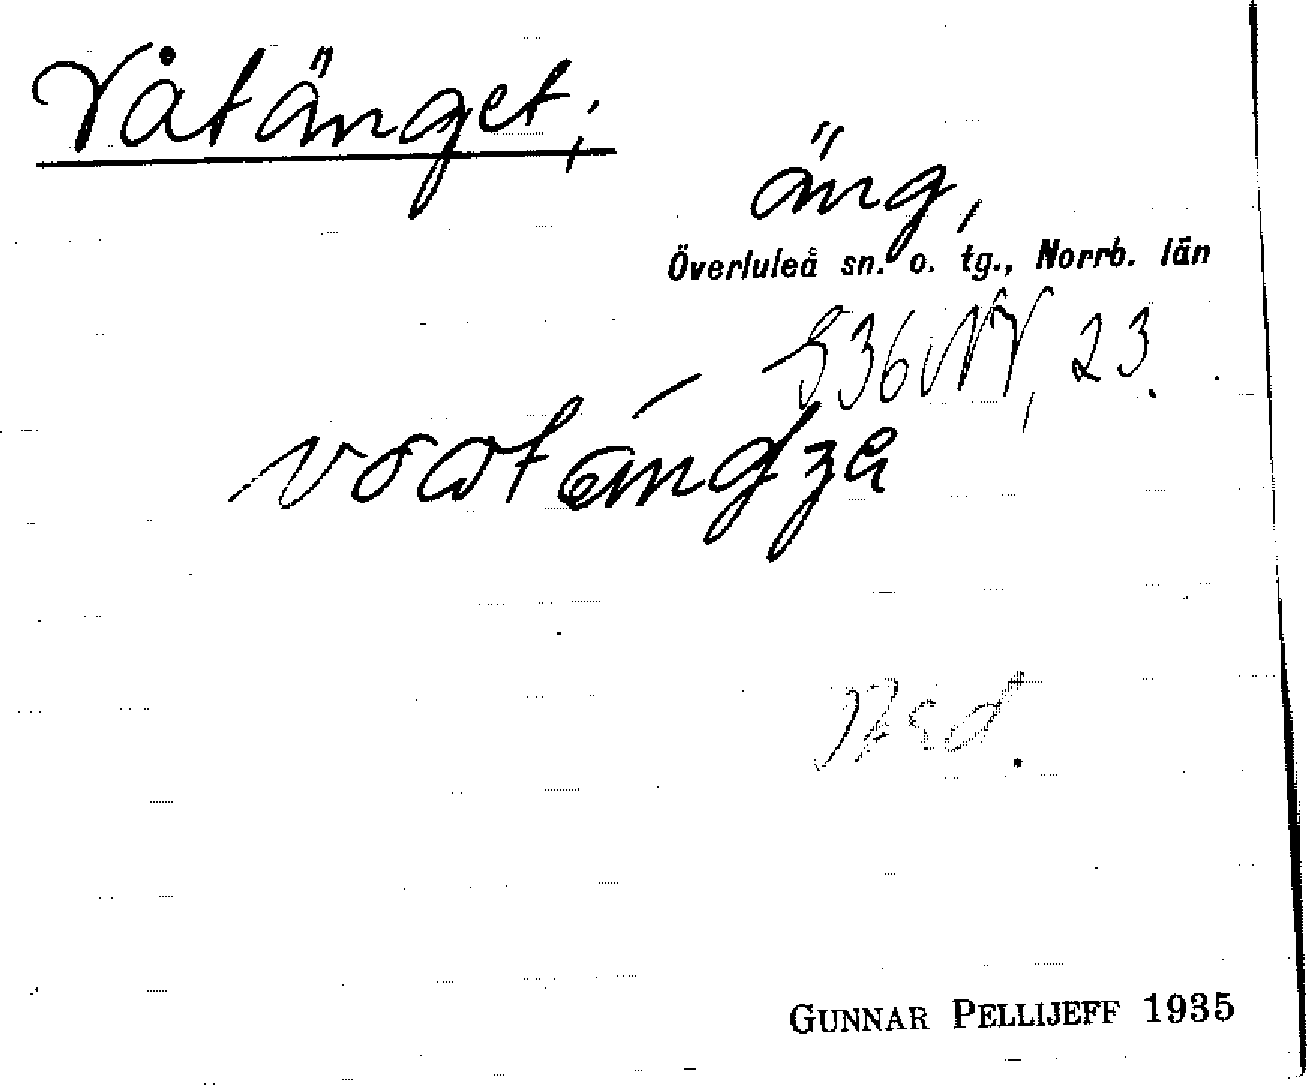 Våtänget;
äng,
Överluleå sn. o. tg., Norrb. län
S36NV, 23.
GUNNAR PELLIJEFF 1935